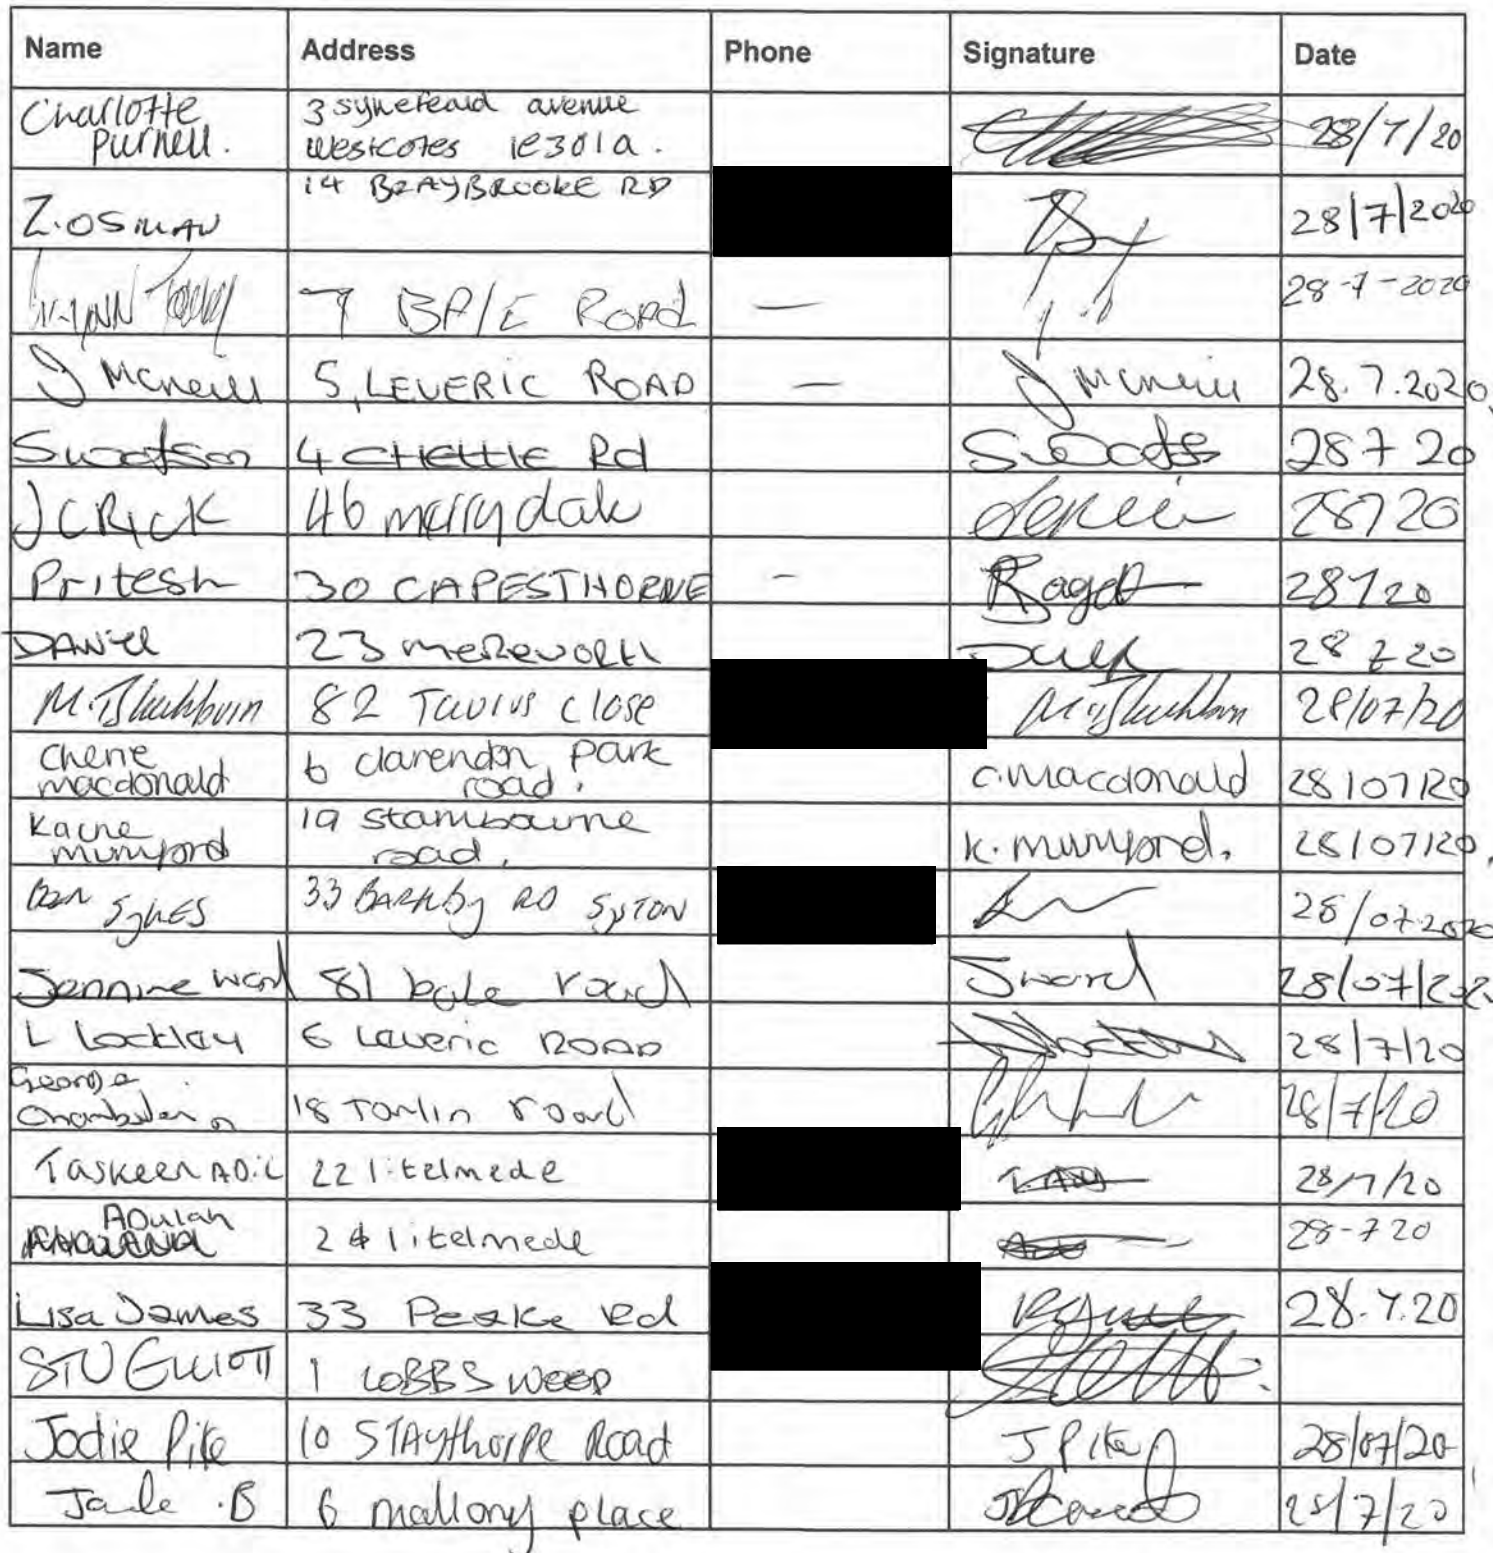 Name Address Phone Signature Date
Charlotte 3 avenue
Purnell. westcotes le301a. 28/7/20
14 BRAYBROOKE RD
Z.OSMAN 28/7/2020
7 BALE ROAD — 28-7-2020
J Mcneill 5, LEVERIC ROAD — J Mcneill 28.7.2020,
S watson 4 CHETTLE Rd 28 7 20
J CRICK 46 merrydale 28 7 20
Pritesh 30 CAPESTHORNE - 28 7 20
DANIEL 23 mereworth 28 7 20
M. Blackburn 82 Taurus close M. Blackburn 28/07/20
cherie 6 clarendon park
macdonald road. c.macdonald 28/07/20
19 stambourne
mumford road. k. mumford. 28/07/20,
Ben Sykes 33 BARKBy RD SySTON 28/07.2020
Jennine Ward 81 bale road J ward 28/07/202
L Lockley 6 Laveric ROAD 28/7/20
George
18 Tomlin road 28/7/20
Taskeen ADil 22 litelmede 28/7/20
ADulah
litelmede 28-7 20
Lisa James 33 Peake Rd 28.7.20
STU ElliOTT 1
Jodie Pike 10 STAythorpe Road J Pike 28/07/20
Jade .B 6 mallony place 28/7/20